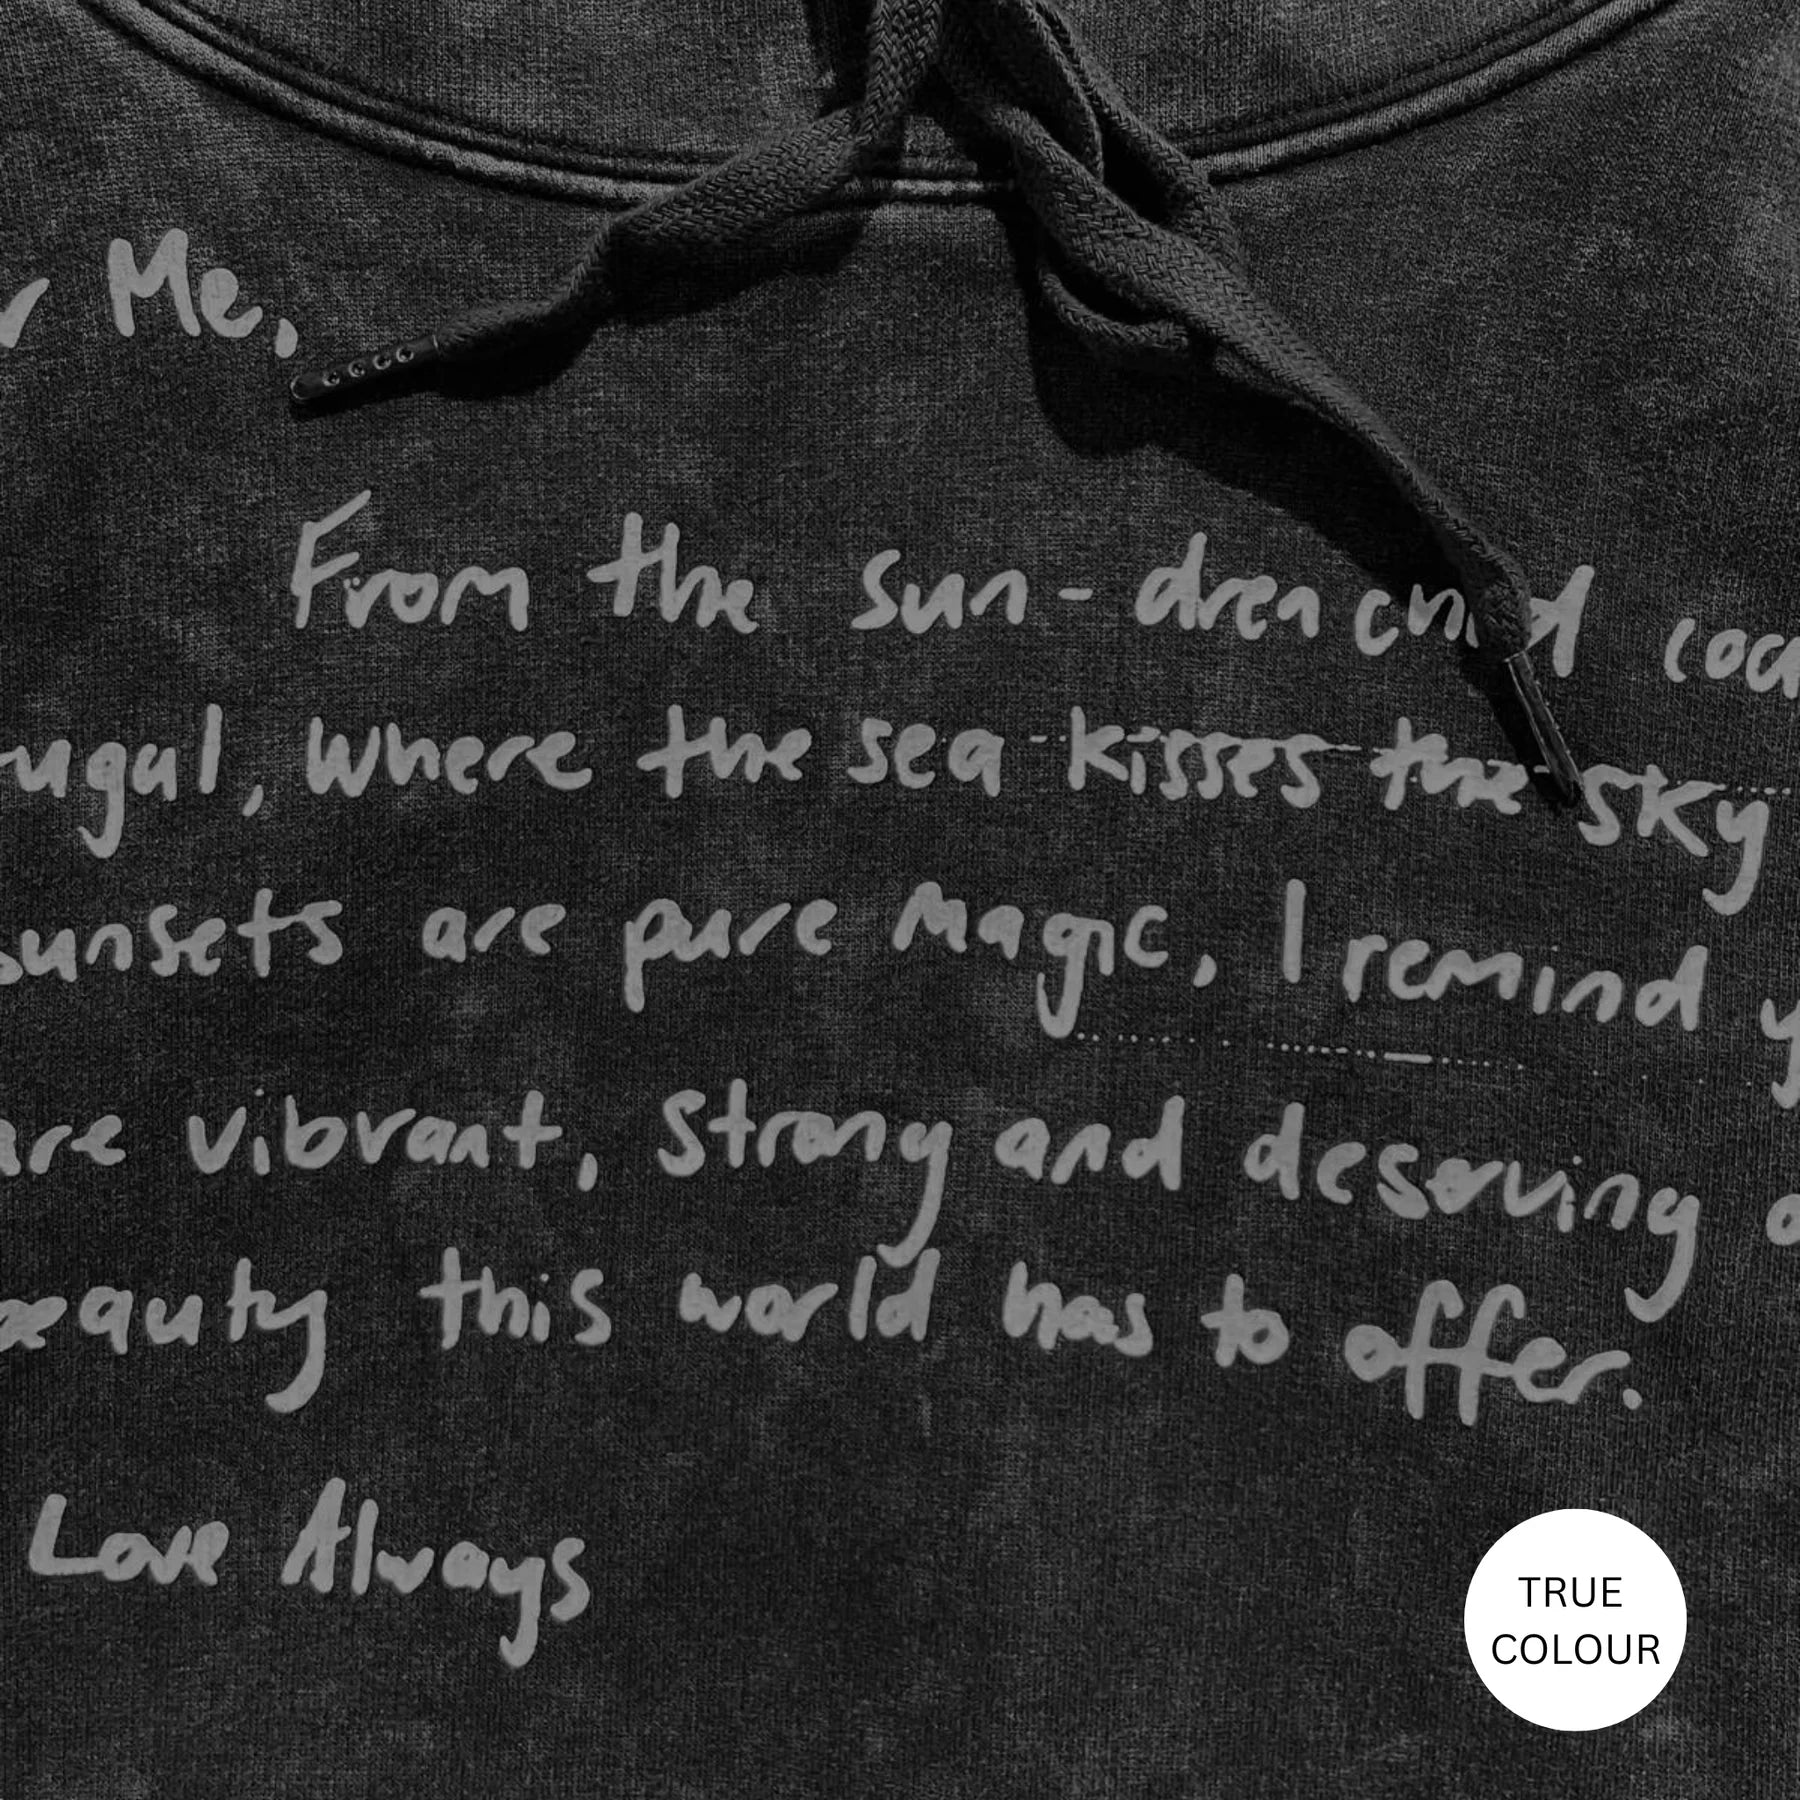 r Me,
From the sun-drenched coa
ugal, where the sea kisses the sky
sunsets are pure magic, I remind y
are vibrant, strong and deserving o
beauty this world has to offer.
Love Always
TRUE
COLOUR